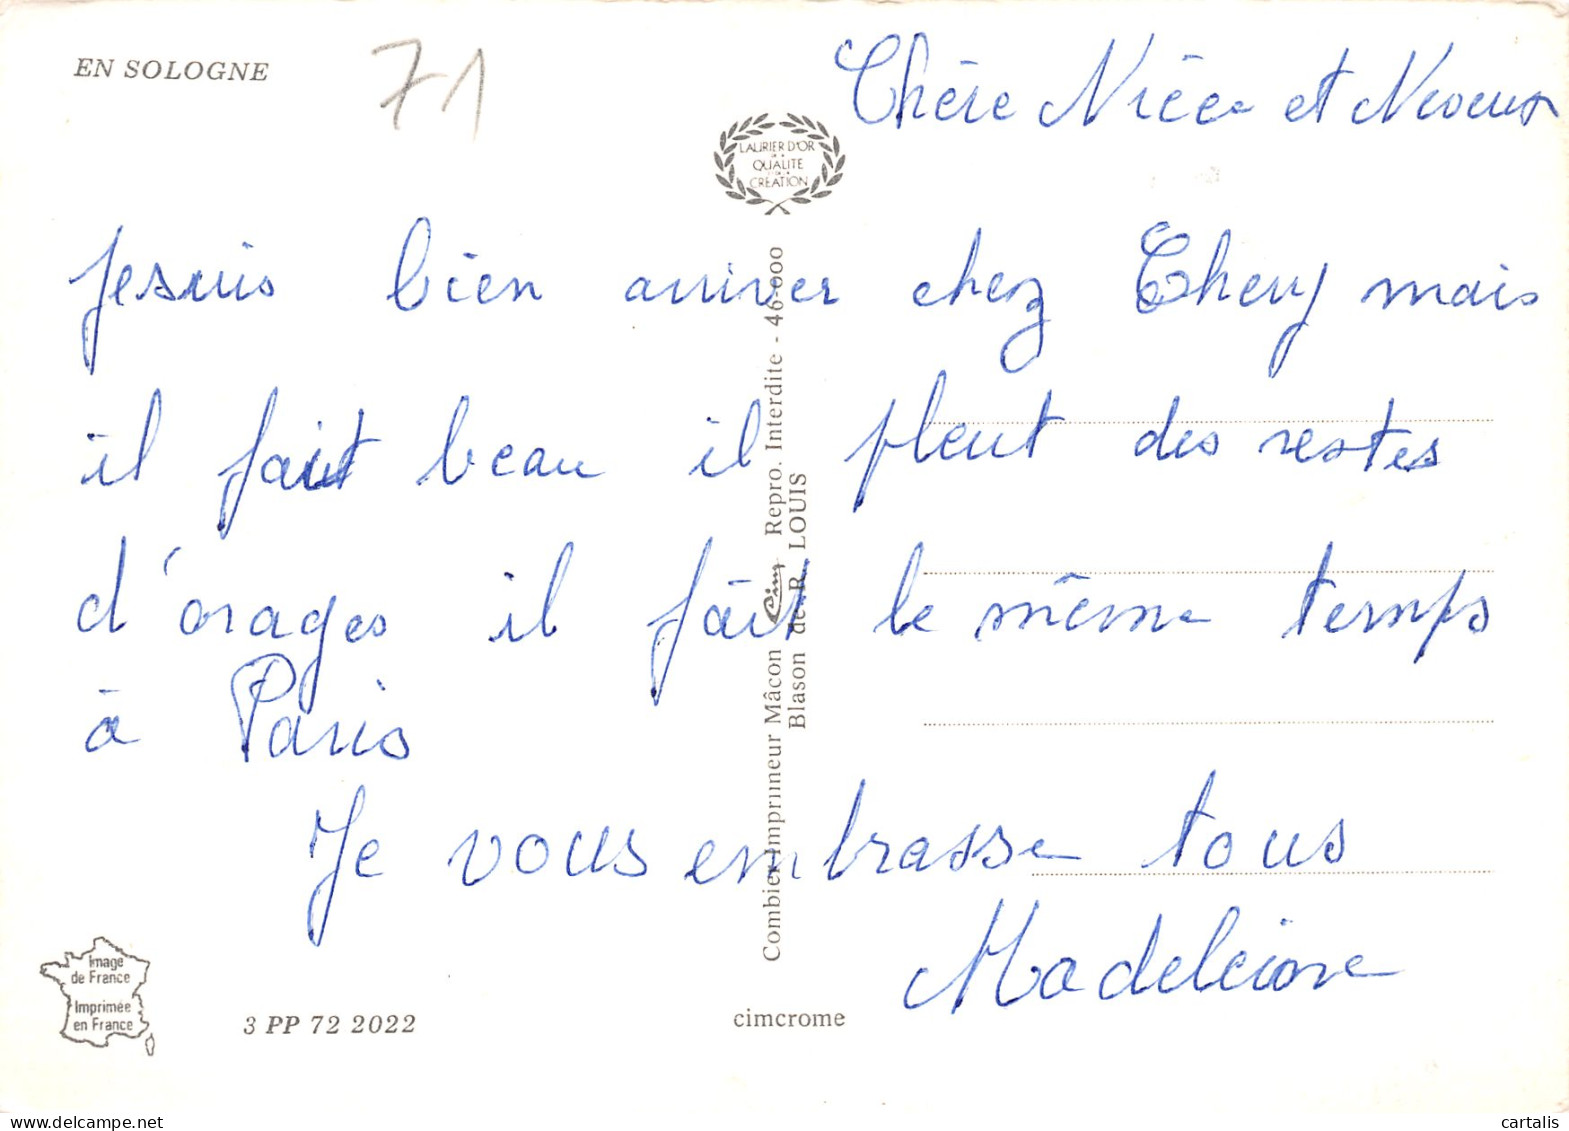 EN SOLOGNE
71
Chère Nièce et Neveux
LAURIER D'OR
DE LA
QUALITE
DE LA
CRÉATION
Je suis bien arriver chez Thery mais
il fait beau il pleut des restes
d'orages il fait le même temps
à Paris
Je vous embrasse tous
Madeleine
Combier Imprimeur Mâcon Cim Repro. Interdite - 46-000
Blason de R. LOUIS
Image
de France
Imprimée
en France
3 PP 72 2022
cimcrome
cartalis